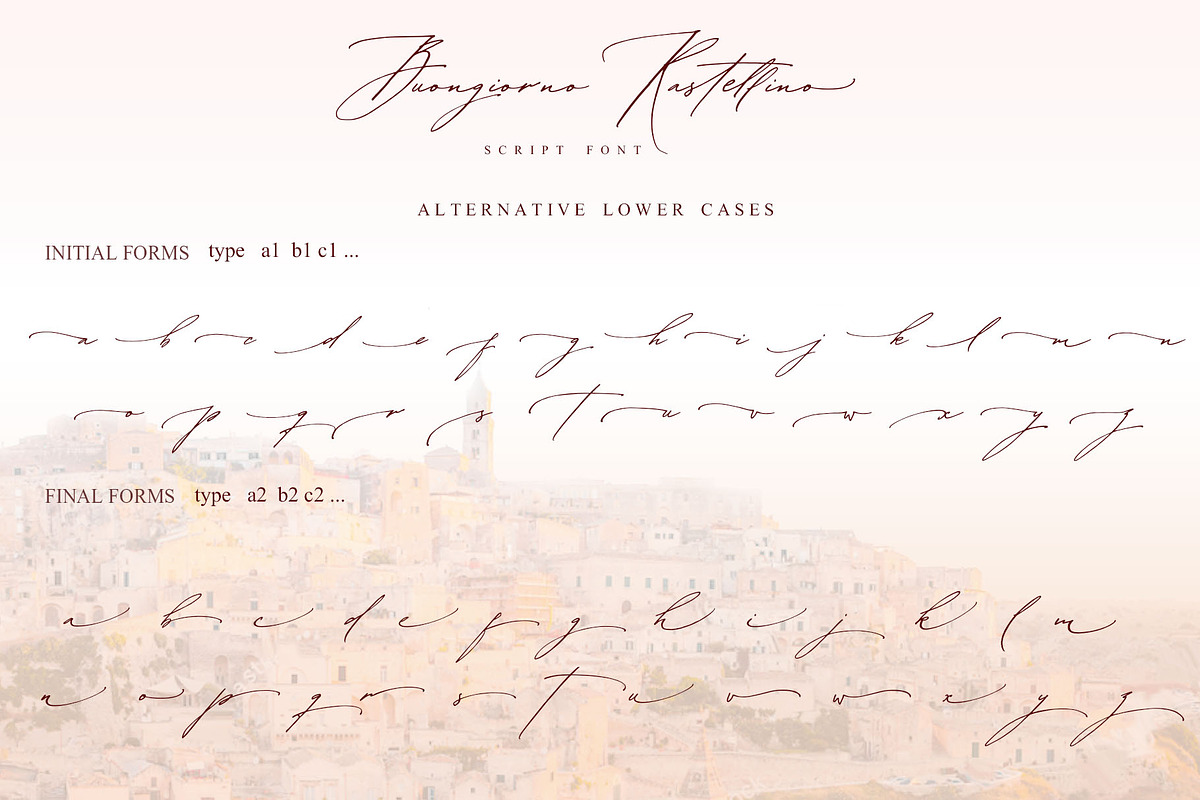 Buongiorno Rastellino
SCRIPT FONT
ALTERNATIVE LOWER CASES
INITIAL FORMS type a1 b1 c1 ...
a b c d e f g h i j k l m n
o p q r s t u v w x y z
FINAL FORMS type a2 b2 c2 ...
a b c d e f g h i j k l m
n o p q r s t u v w x y z